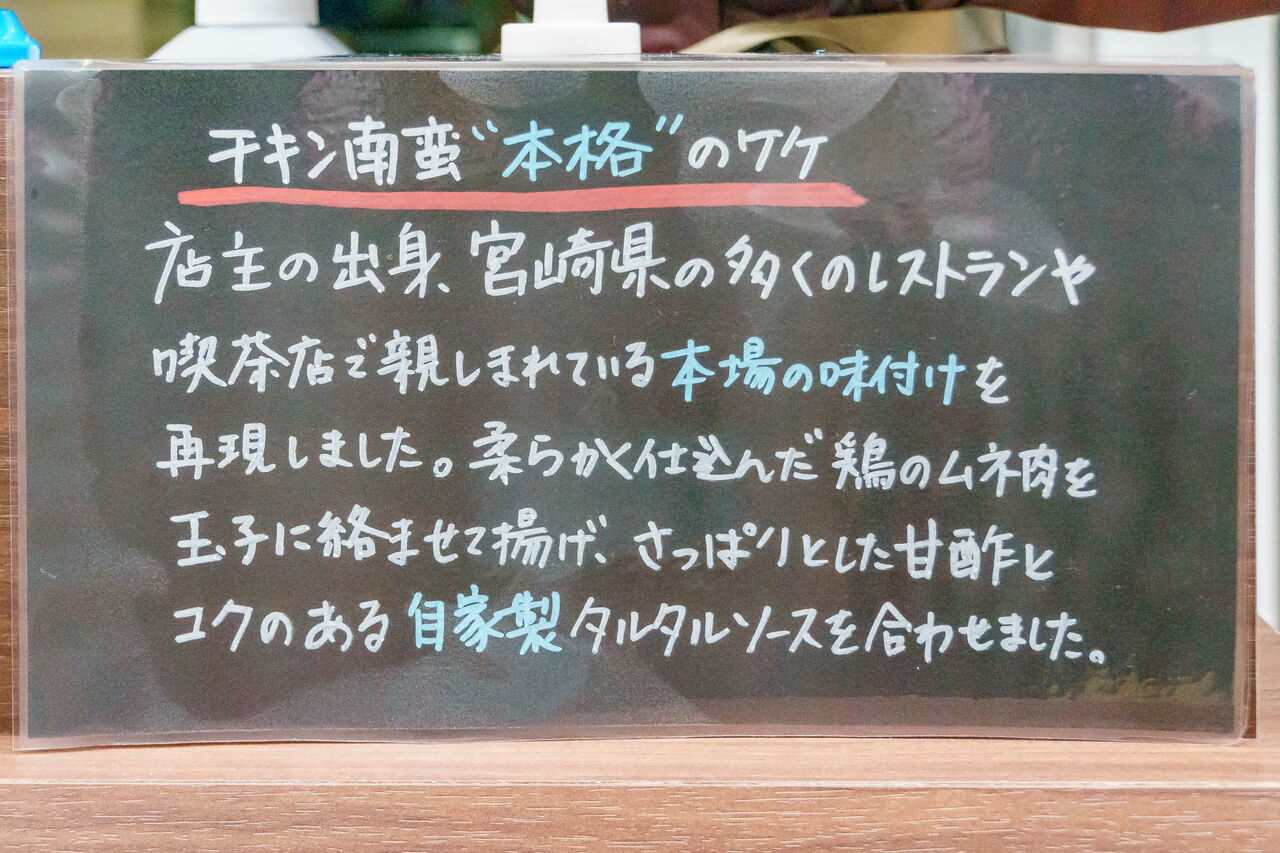 チキン南蛮“本格”のワケ
店主の出身、宮崎県の多くのレストランや
喫茶店で親しまれている本場の味付けを
再現しました。柔らかく仕込んだ鶏のムネ肉を
玉子に絡ませて揚げ、さっぱりとした甘酢と
コクのある自家製タルタルソースを合わせました。